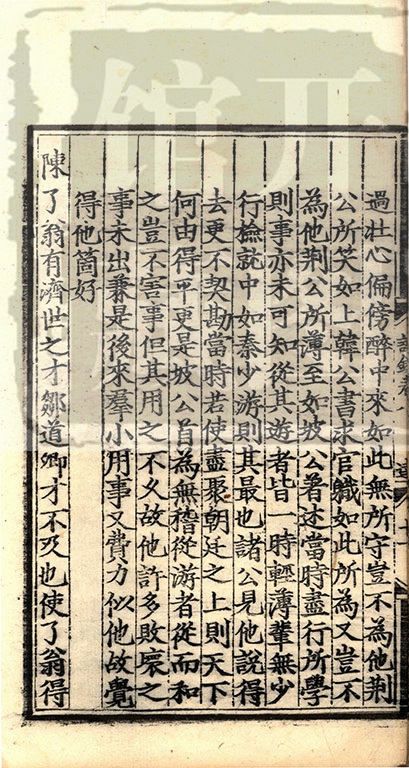 過壯心偏傍醉中來如此無所守豈不為他荆
公所笑如上韓公書求官職如此所為又豈不
為他荆公所薄至如坡公著述當時盡行所學
則事亦未可知從其遊者皆一時輕薄輩無少
行檢就中如秦少游則其最也諸公見他說得
去更不契勘當時若使盡聚朝廷之上則天下
何由得平更是坡公首為無稽從游者從而和
之豈不害事但其用之不久故他許多敗壞之
事未出兼是後來羣小用事又費力似他故覺
得他箇好
陳了翁有濟世之才鄒道卿才不及也使了翁得